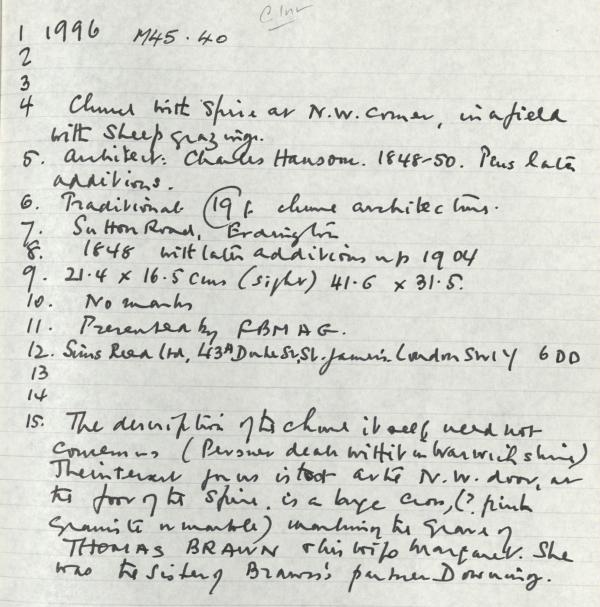 C. Inv
1 1996 M45.40
2
3
4 Church with Spire at N.W. Corner, in a field
with Sheep grazing.
5. Architect: Charles Hansom. 1848-50. Plus later
additions.
6. Traditional 19 C. church architecture.
7. Sutton Road, Erdington
8. 1848 with later additions up 1904
9. 21.4 x 16.5 cms (sight) 41.6 x 31.5.
10. No marks
11. Presented by FBMAG.
12. Sims Reed Ltd, 43A Duke St, St. James's London SW1Y 6DD
13
14
15. The description of the church itself need not
concern us (Pevsner deals with it in Warwickshire)
The interest for us is that at the N.W. door, at
the foot of the Spire, is a large Cross, (? pink
granite or marble) marking the Grave of
THOMAS BRAWN & his wife Margaret. She
was the Sister of Brawn's partner Downing.